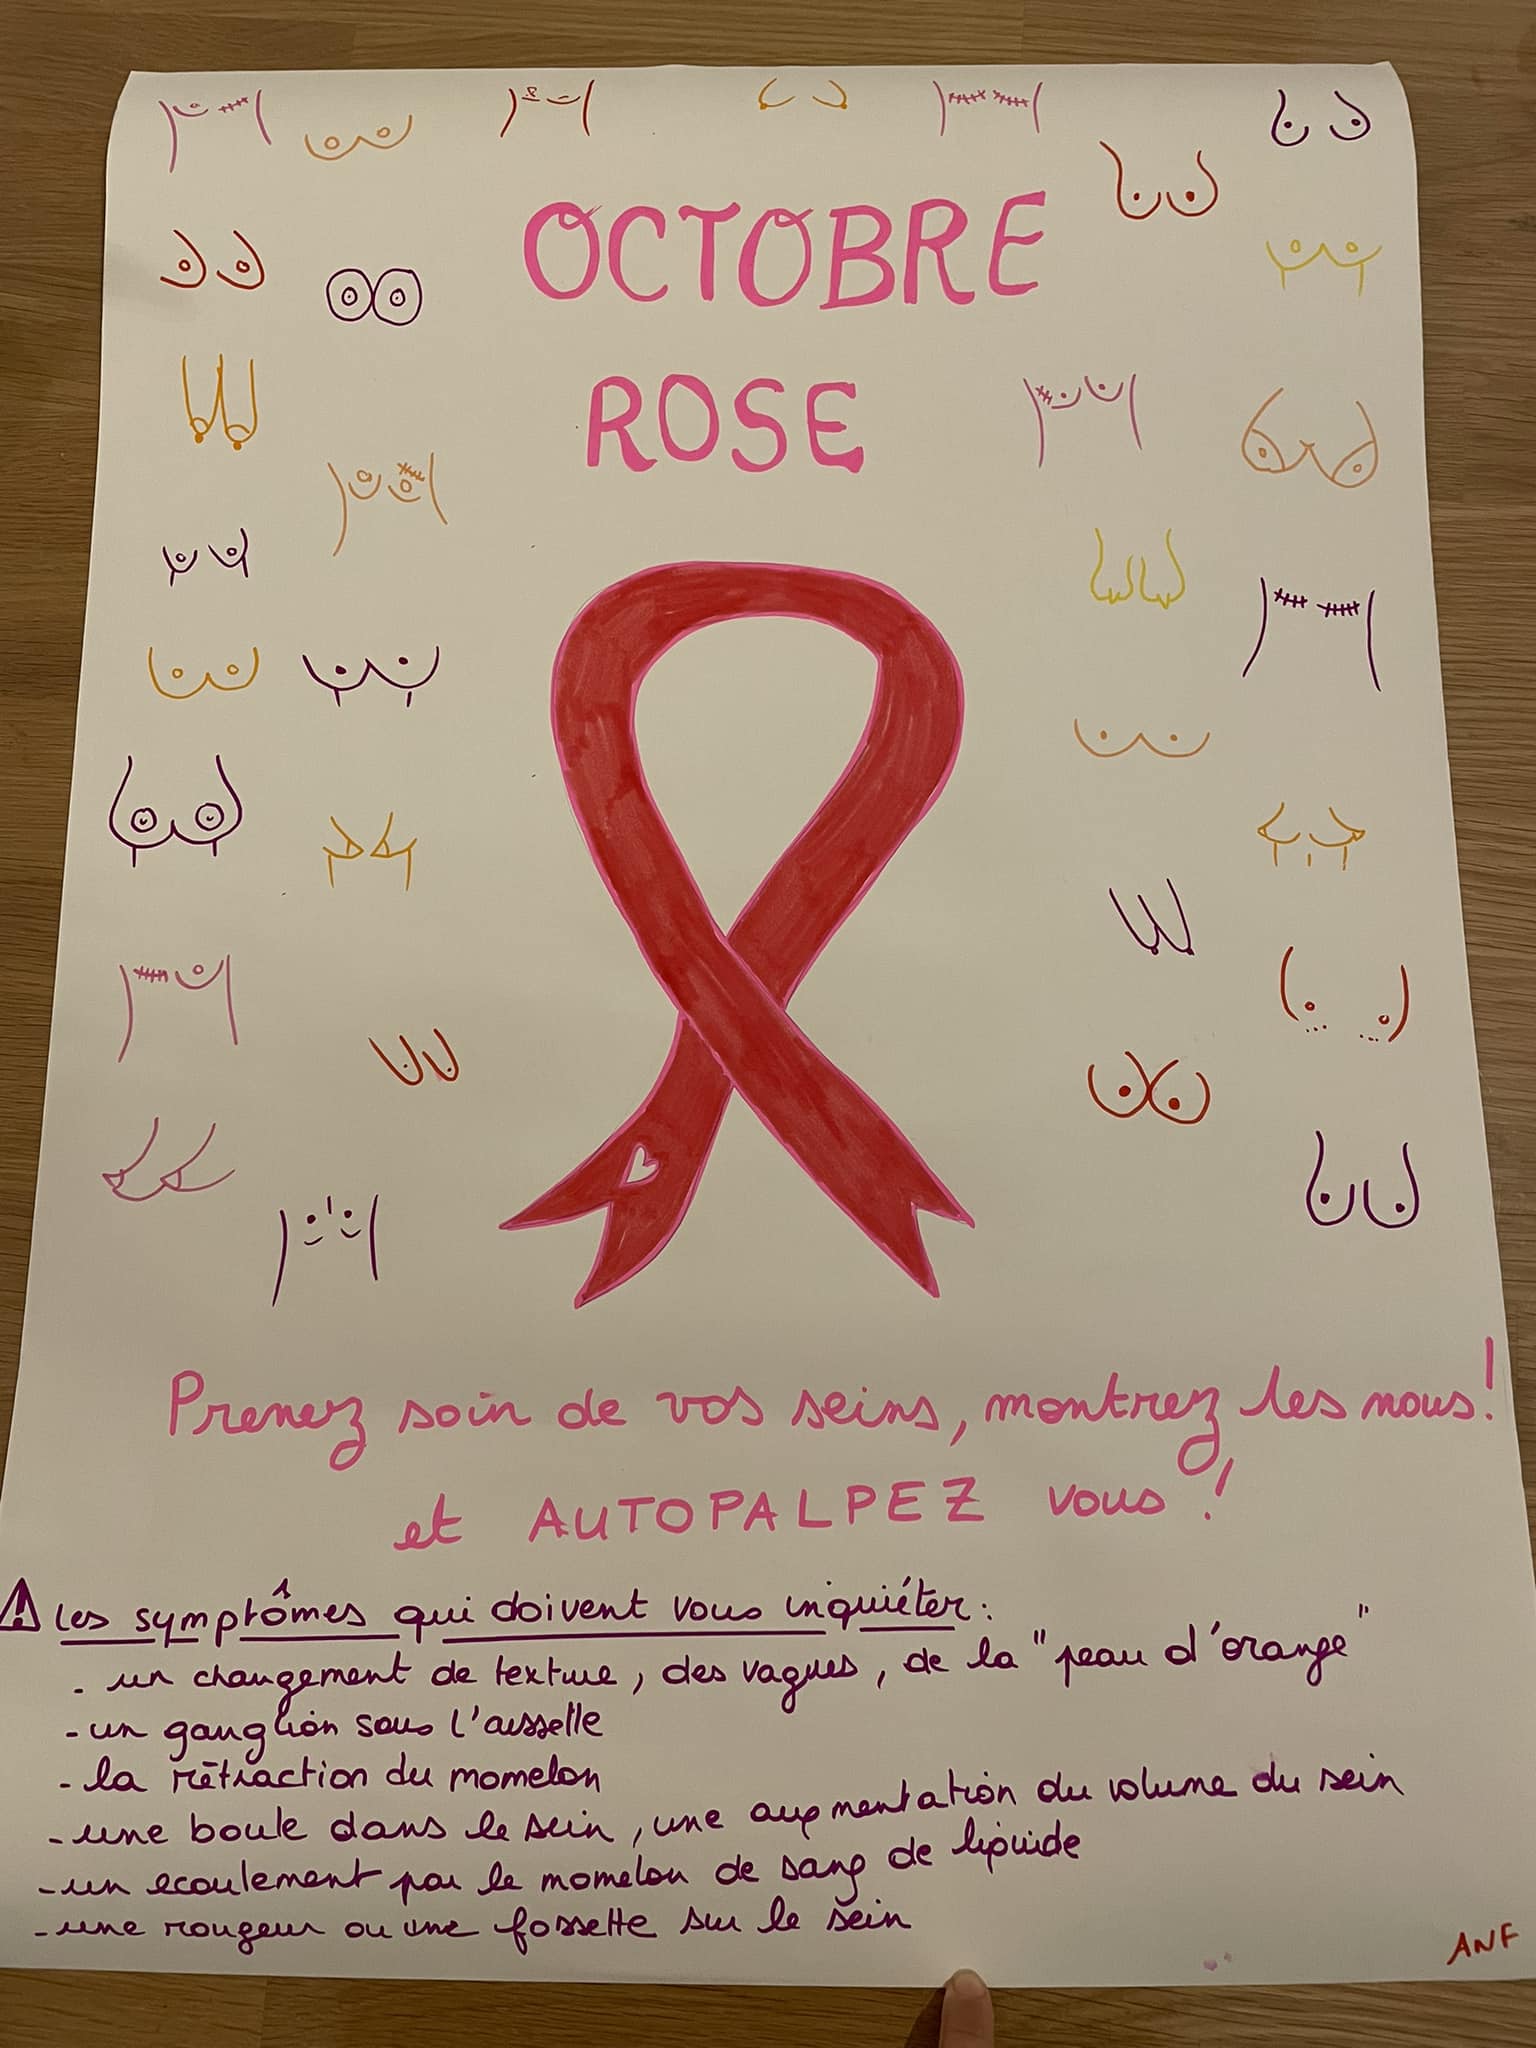 OCTOBRE
ROSE
Prenez soin de vos seins, montrez les nous!
et AUTOPALPEZ vous!
⚠ Les symptômes qui doivent vous inquiéter:
- un changement de texture, des vagues, de la "peau d'orange"
- un ganglion sous l'aisselle
- la rétraction du momelon
- une boule dans le sein, une augmentation du volume du sein
- un ecoulement par le momelon de sang de liquide
- une rougeur ou une fossette sur le sein
ANF